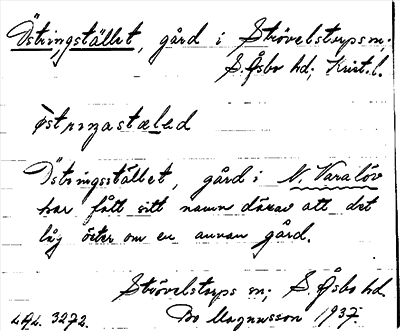 Östringstället, gård i Strövelstorps sn;
S. Åsbo hd; Krist. l.
östrıŋastæləd
Östringsstället, gård i N. Varalöv
har fått sitt namn därav att det
låg öster om en annan gård.
Strövelstorps sn; S. Åsbo hd.
Bo Magnusson 1937.
3272.